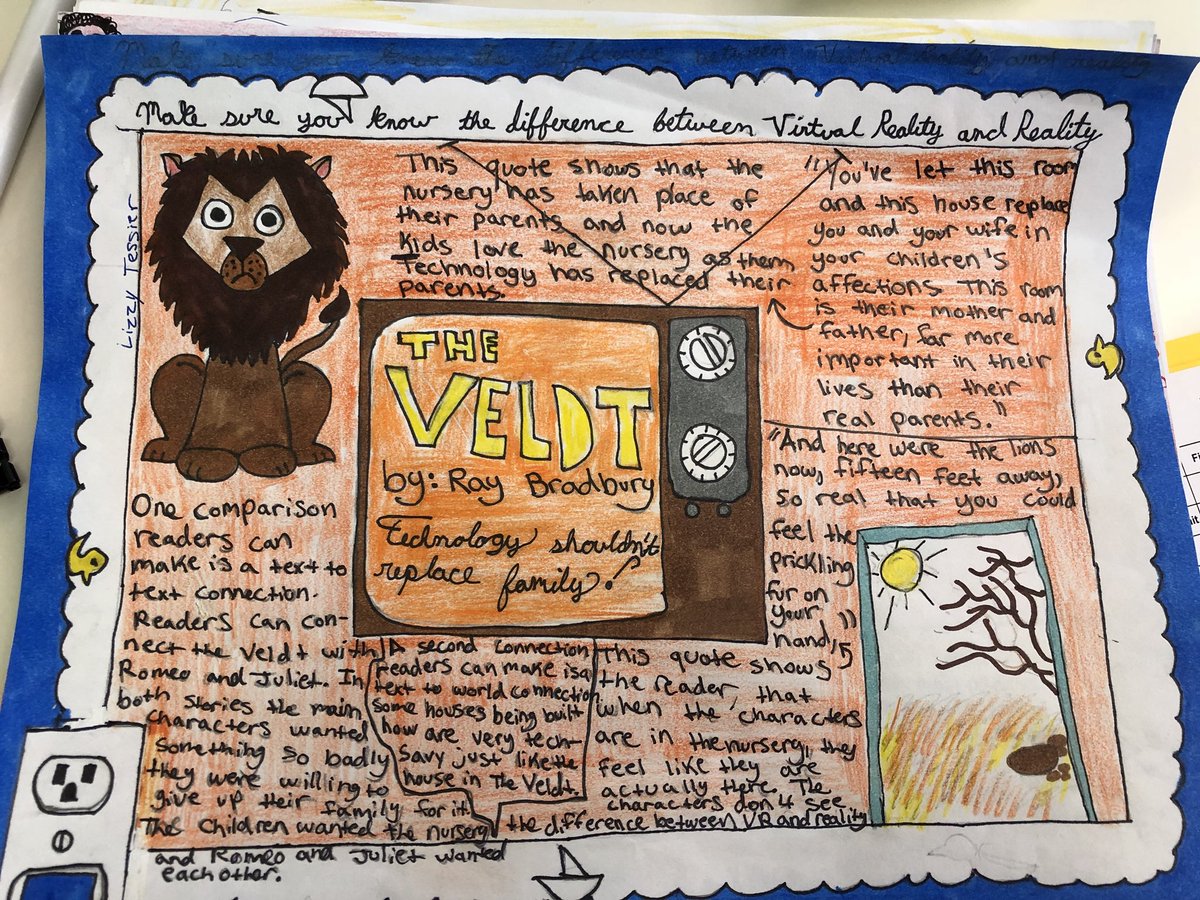 Make sure you know the difference between Virtual Reality and Reality
Make sure you know the difference between Virtual Reality and Reality
Lizzy Tessier
This quote shows that the
nursery has taken place of
their parents and now the
Kids love the nursery as them
Technology has replaced their
parents.
"You've let this room
and this house replace
you and your wife in
your children's
affections. This room
is their mother and
father, far more
important in their
lives than their
real parents."
THE
VELDT
by: Ray Bradbury
Technology shouldn't
replace family!
"And here were the lions
now, fifteen feet away,
so real that you could
feel the
prickling
fur on
your
hand,"
One comparison
readers can
make is a text to
text connection.
Readers can con-
nect the Veldt with
Romeo and Juliet. In
both stories the main
characters wanted
something so badly
they were willing to
give up their family for it.
The children wanted the nursery
and Romeo and Juliet wanted
each other.
A second connection
readers can make is a
text to world connection
some houses being built
now are very tech-
savy just like the
house in The Veldt.
This quote shows
the reader that
when the characters
are in the nursery, they
feel like they are
actually there. The
characters don't see
the difference between VR and reality